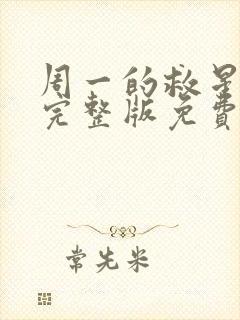 周一的救星
完整版免费
常先米